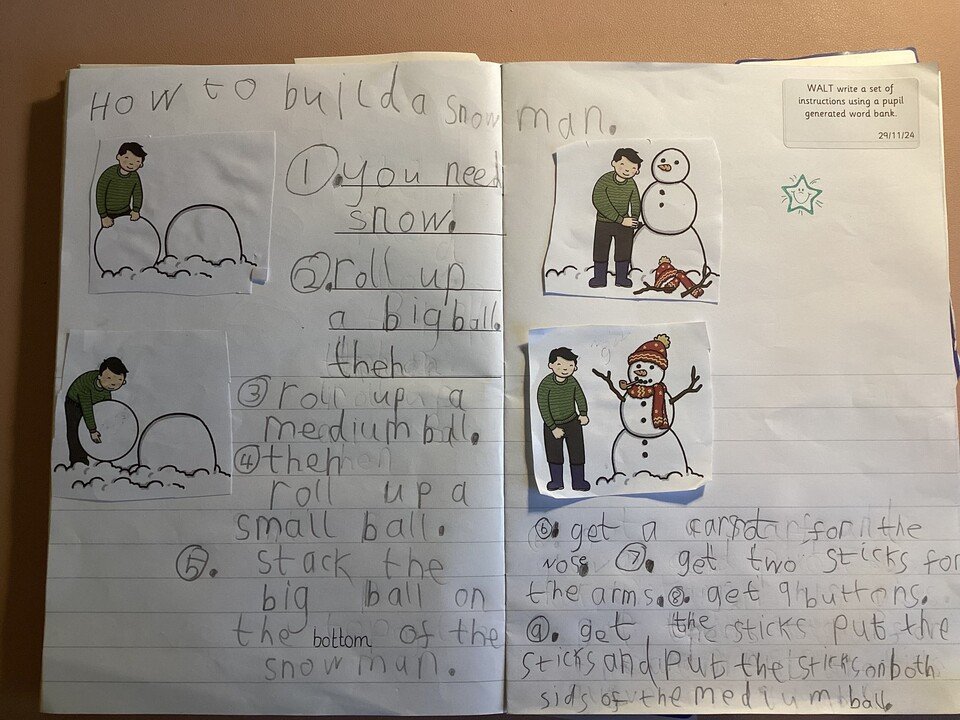 How to build a snow man.
WALT write a set of
instructions using a pupil
generated word bank.
29/11/24
1. you need
snow.
2. roll up
a big ball.
then
3 roll up a
medium ball.
4 then
roll up a
small ball.
5. stack the
big ball on
the bottom of the
snow man.
6. get a carrot for the
nose 7. get two sticks for
the arms. 8. get 9 buttons.
9. get the sticks put the
sticks and put the sticks on both
sids of the medium ball.